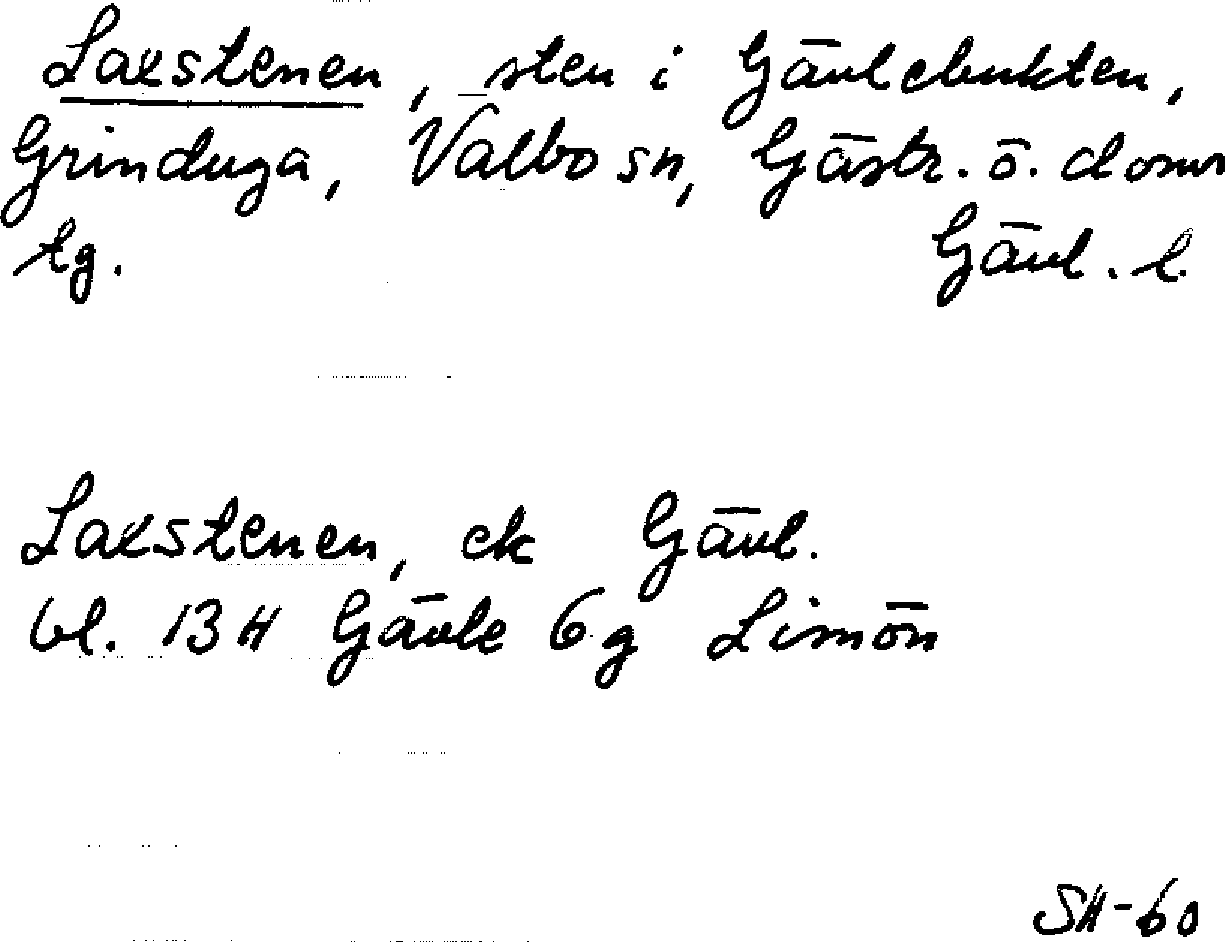 Laxstenen, sten i Gävlebukten,
Grinduga, Valbo sn, Gästr. ö. doms
tg. Gävl. l.
Laxstenen, ek Gävl.
bl. 13 H Gävle 6 g Limön
SH-60